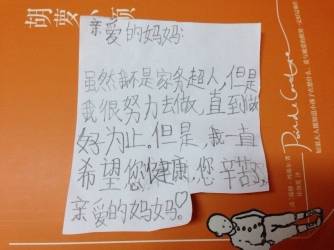 亲爱的妈妈:
虽然我不是家务超人,但是
我很努力去做,直到做
好为止。但是,我一直
希望您健康,您辛苦了,
亲爱的妈妈。♡
胡萝
须